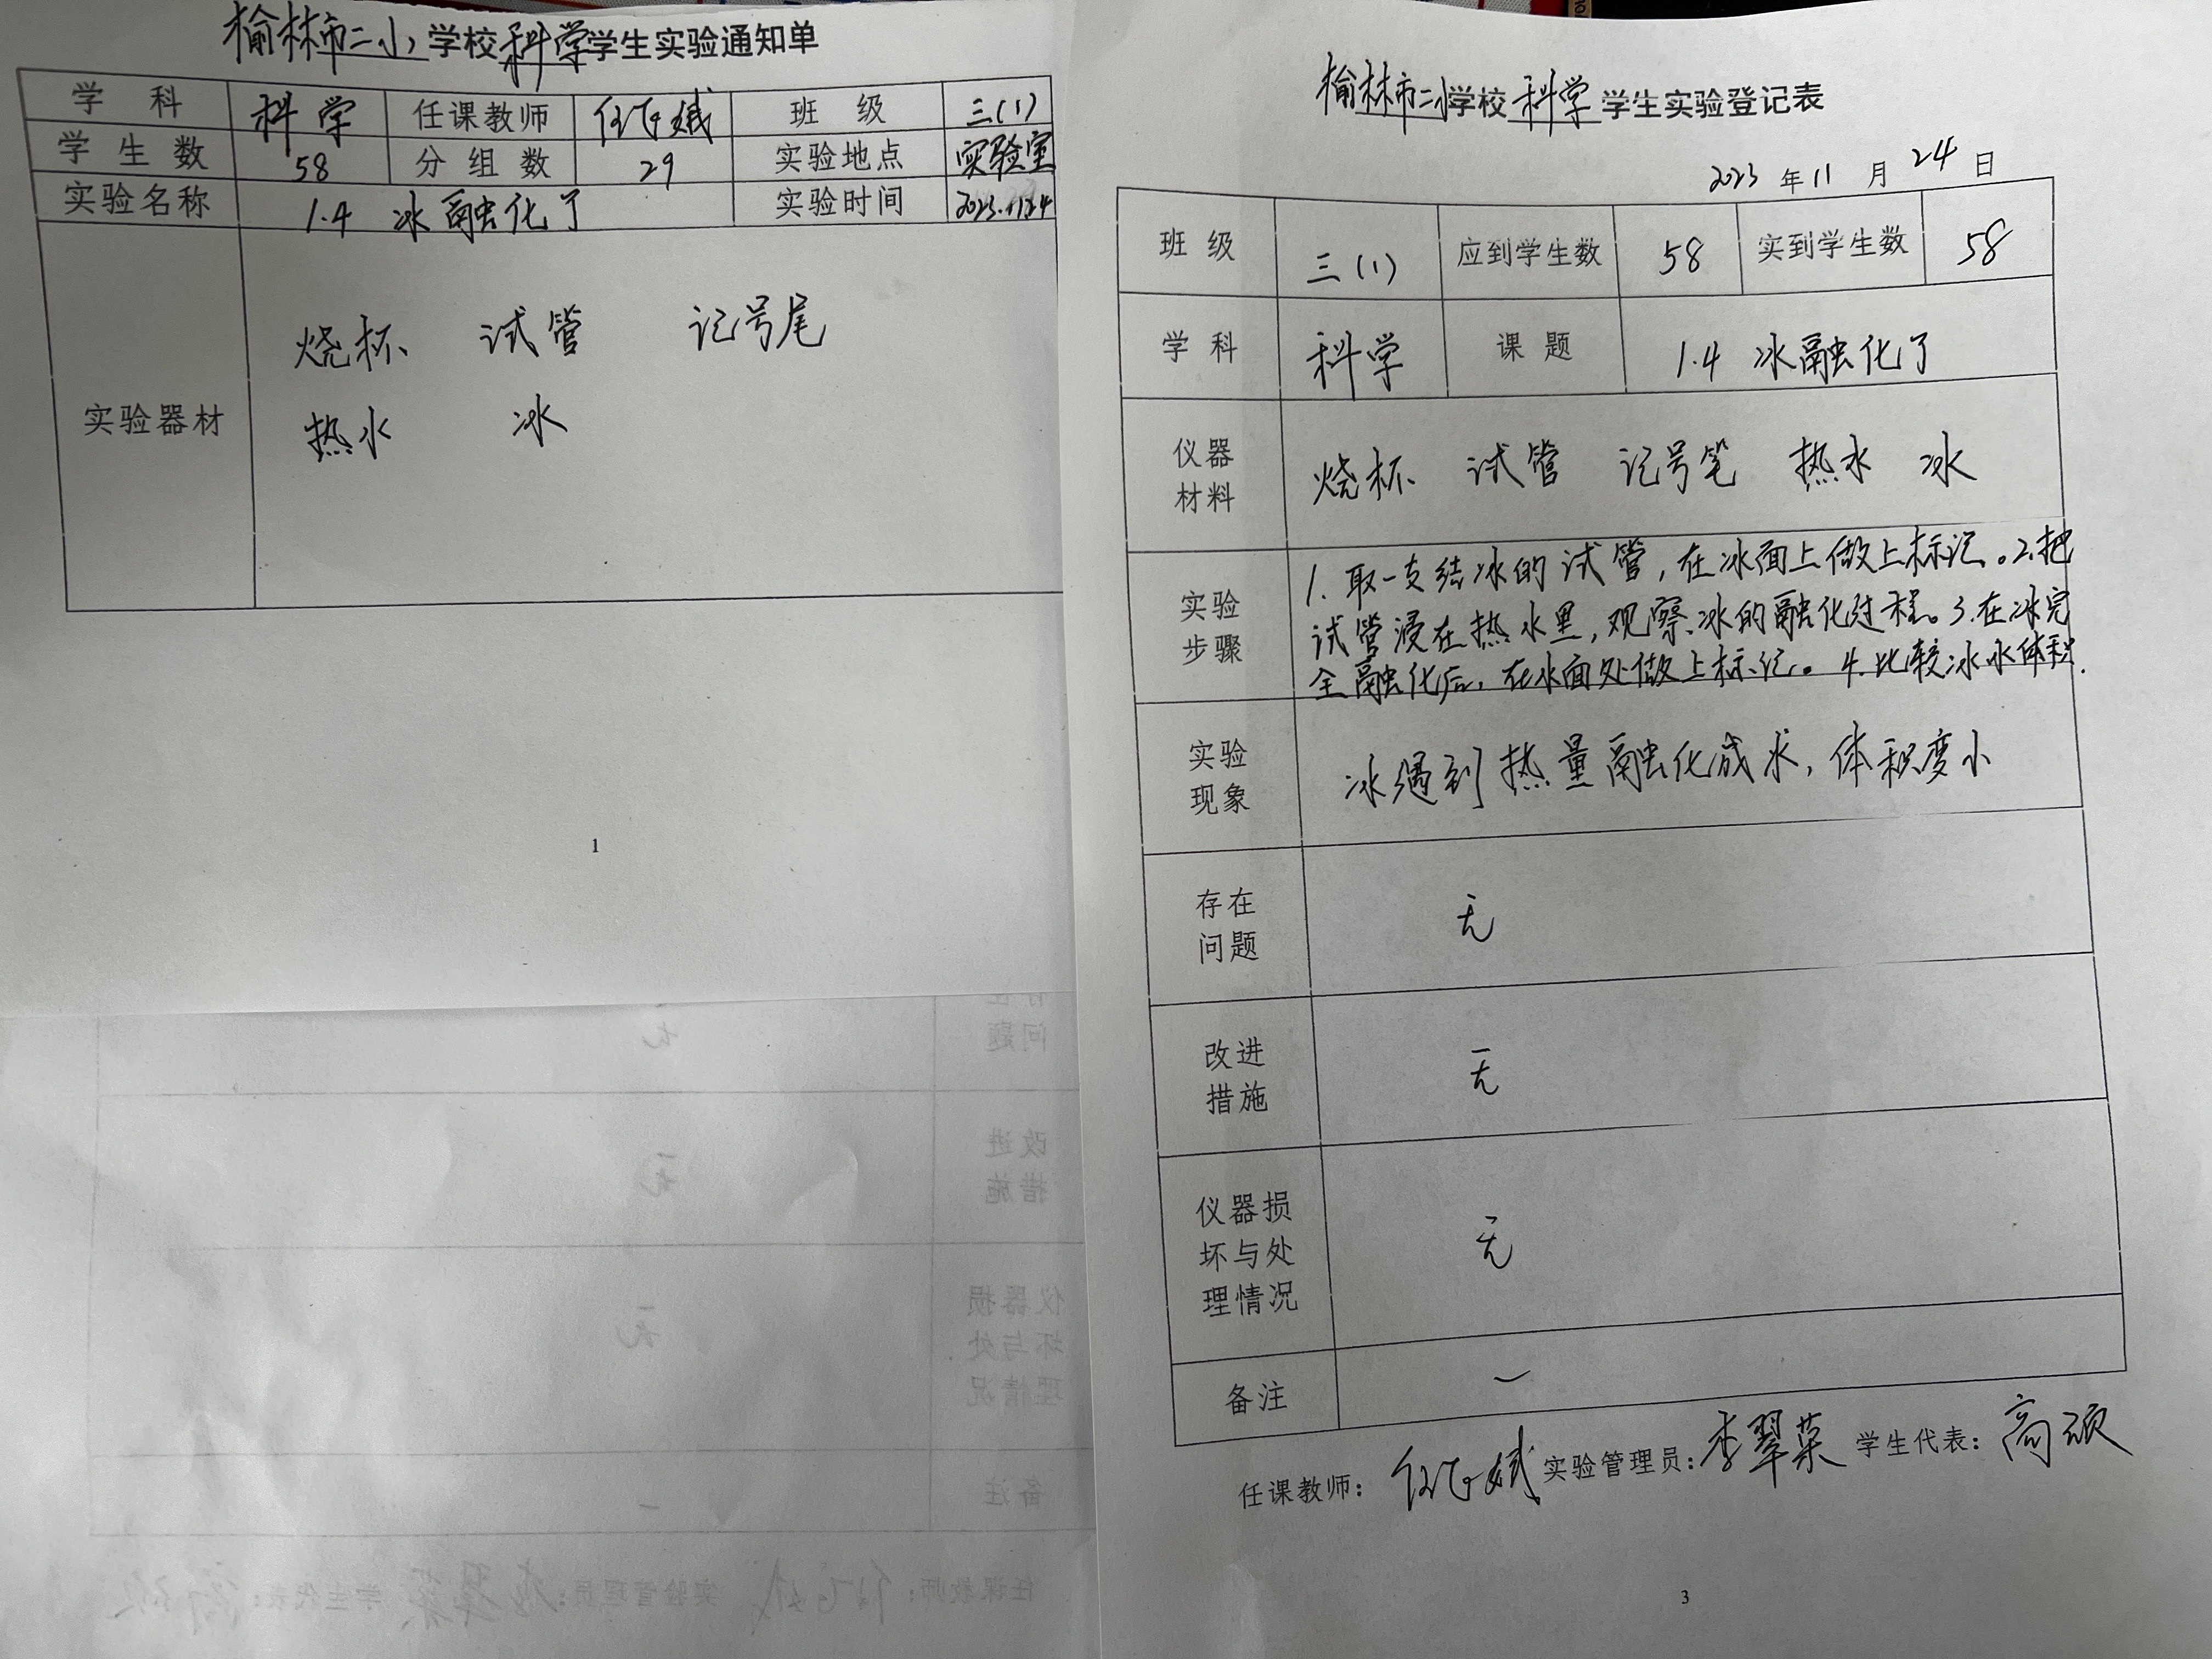 榆林市二小学校科学学生实验通知单
学 科 科学 任课教师 班 级 三(1)
学生数 58 分组数 29 实验地点 实验室
实验名称 1.4 冰融化了 实验时间 2023.11.24
实验器材
烧杯 试管 记号尾
热水 冰
1
榆林市二小学校科学学生实验登记表
2023年11月24日
班级 三(1) 应到学生数 58 实到学生数 58
学科 科学 课题 1.4 冰融化了
仪器
材料
烧杯 试管 记号笔 热水 冰
实验
步骤
1.取一支结冰的试管,在冰面上做上标记。2.把
试管浸在热水里,观察冰的融化过程。3.在冰完
全融化后,在水面处做上标记。4.比较冰水体积.
实验
现象
冰遇到热量融化成水,体积变小
存在
问题
无
改进
措施
无
仪器损
坏与处
理情况
无
备注 一
任课教师: 实验管理员:李翠荣 学生代表:高硕
3